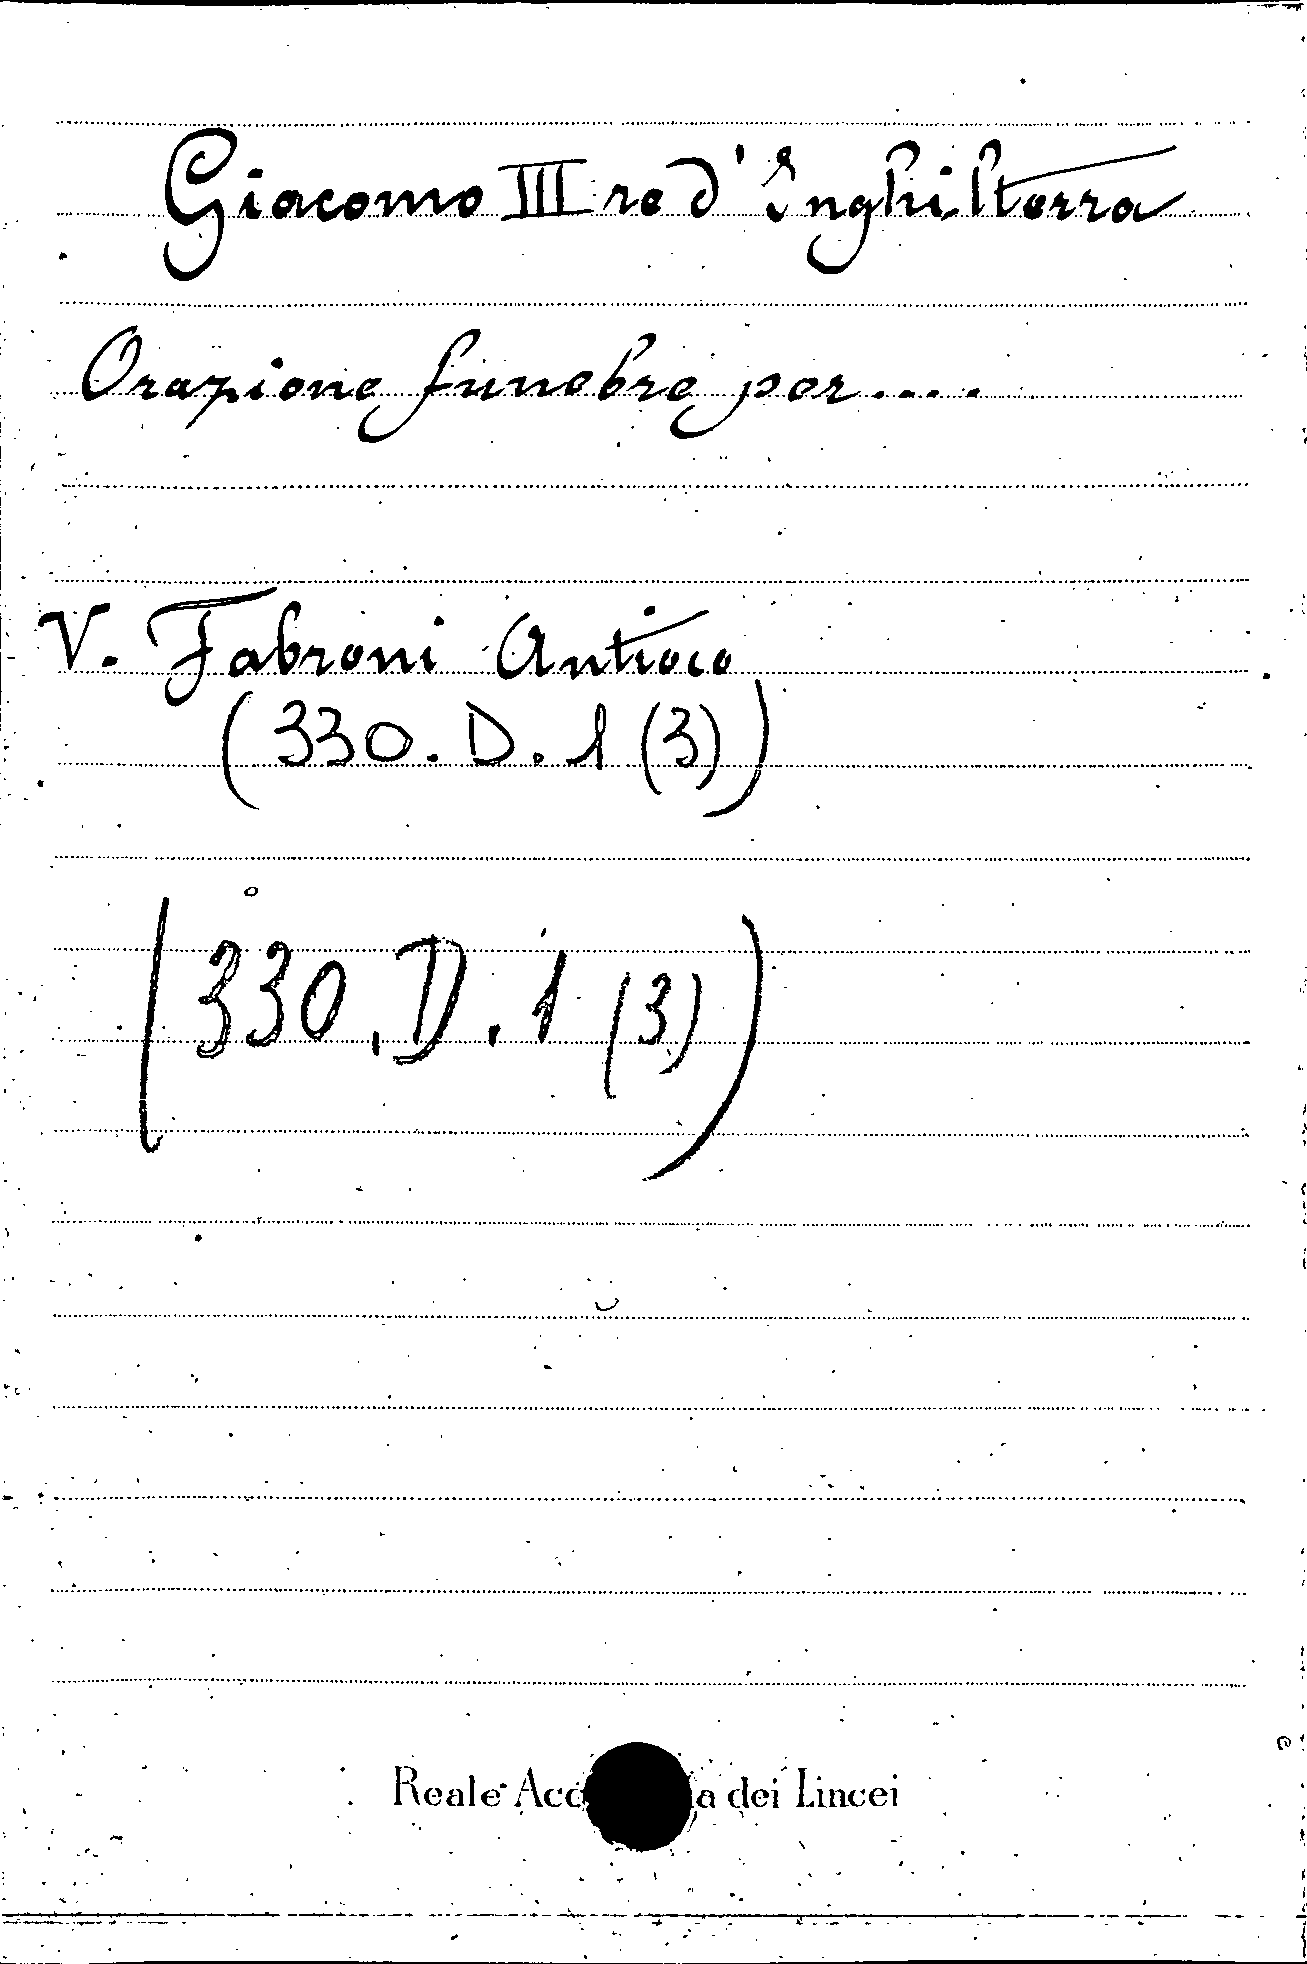 Giacomo III re d'Inghilterra
Orazione funebre per....
V. Fabroni Antioco
(330. D. 1 (3))
(330. D. 1 (3))
Reale dei Lincei